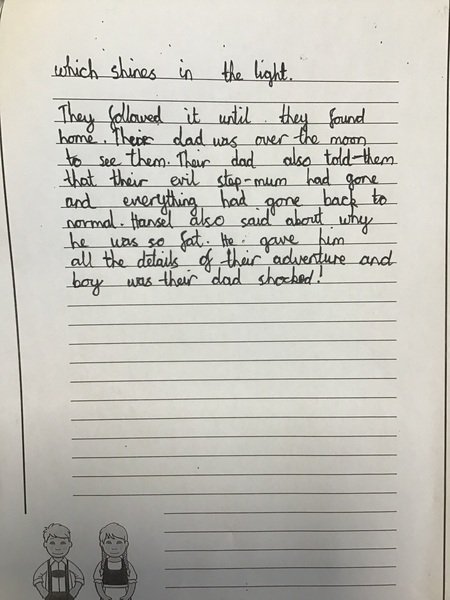 which shines in the light.
They followed it until they found
home. Their dad was over the moon
to see them. Their dad also told them
that their evil step-mum had gone
and everything had gone back to
normal. Hansel also said about why
he was so fat. He gave him
all the details of their adventure and
boy was their dad shocked!